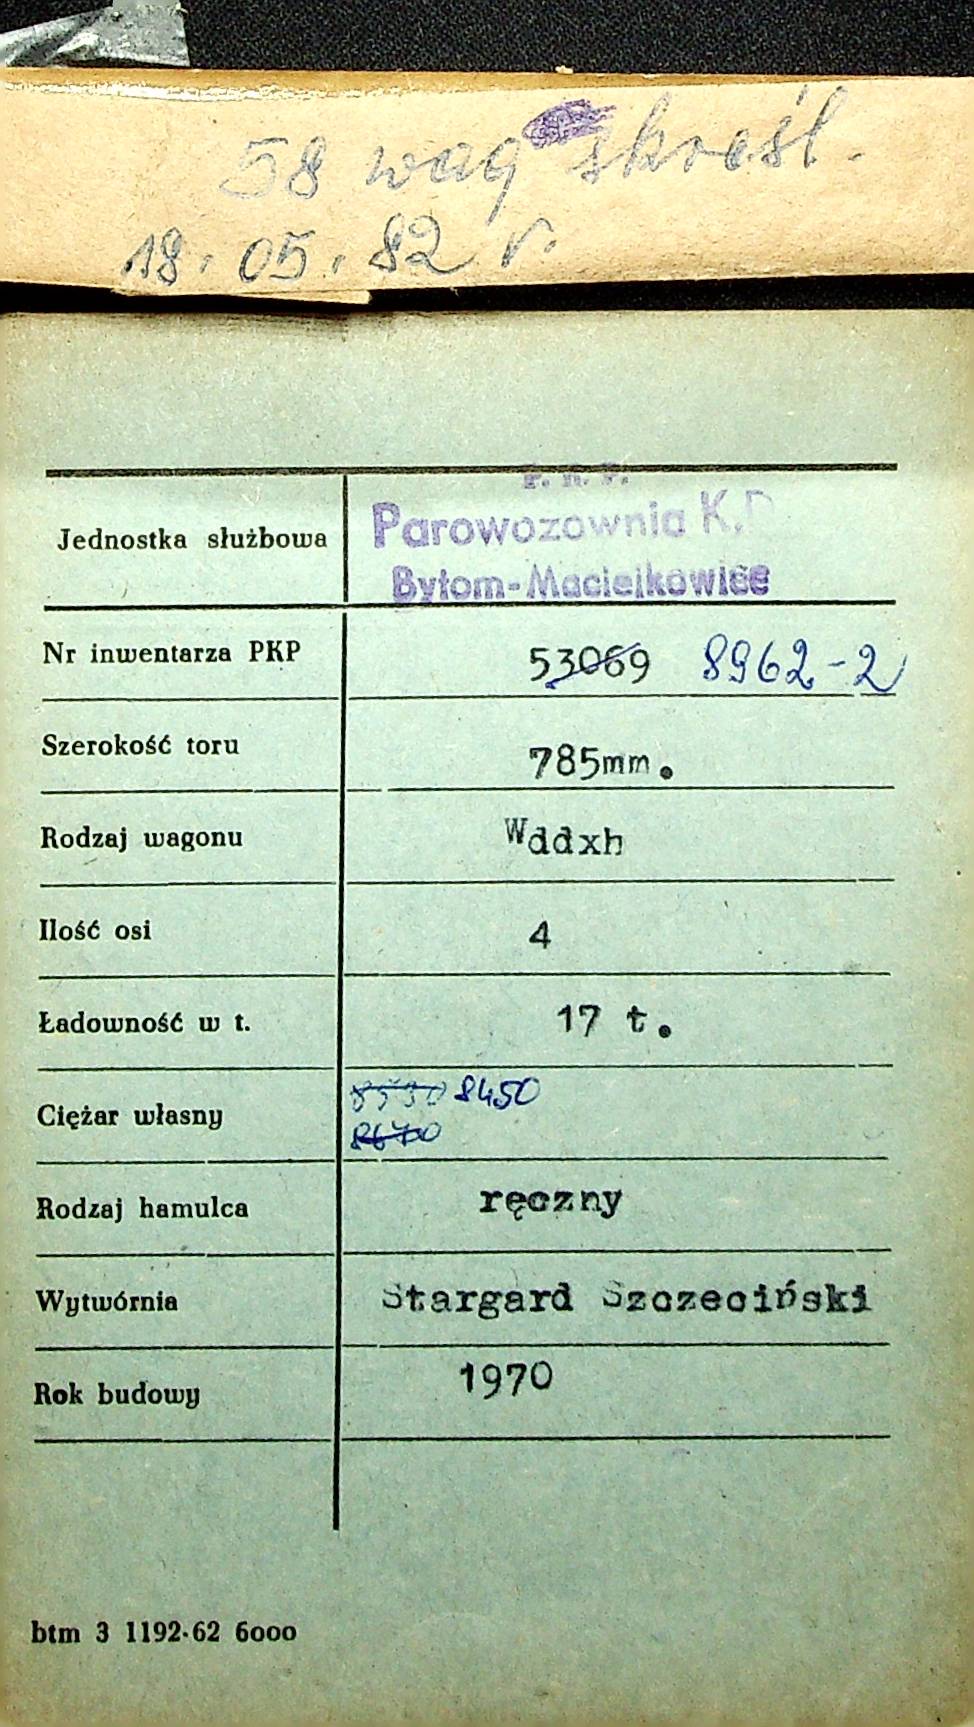 58 wag skreśl.
18.05.82 r.
P. K. P.
Jednostka służbowa Parowozownia K.D
Bytom-Maciejkowice
Nr inwentarza PKP 53069 8962-2
Szerokość toru 785mm.
Rodzaj wagonu Wddxh
Ilość osi 4
Ładowność w t. 17 t.
Ciężar własny 8450
Rodzaj hamulca ręczny
Wytwórnia Stargard Szczeciński
Rok budowy 1970
btm 3 1192-62 6000